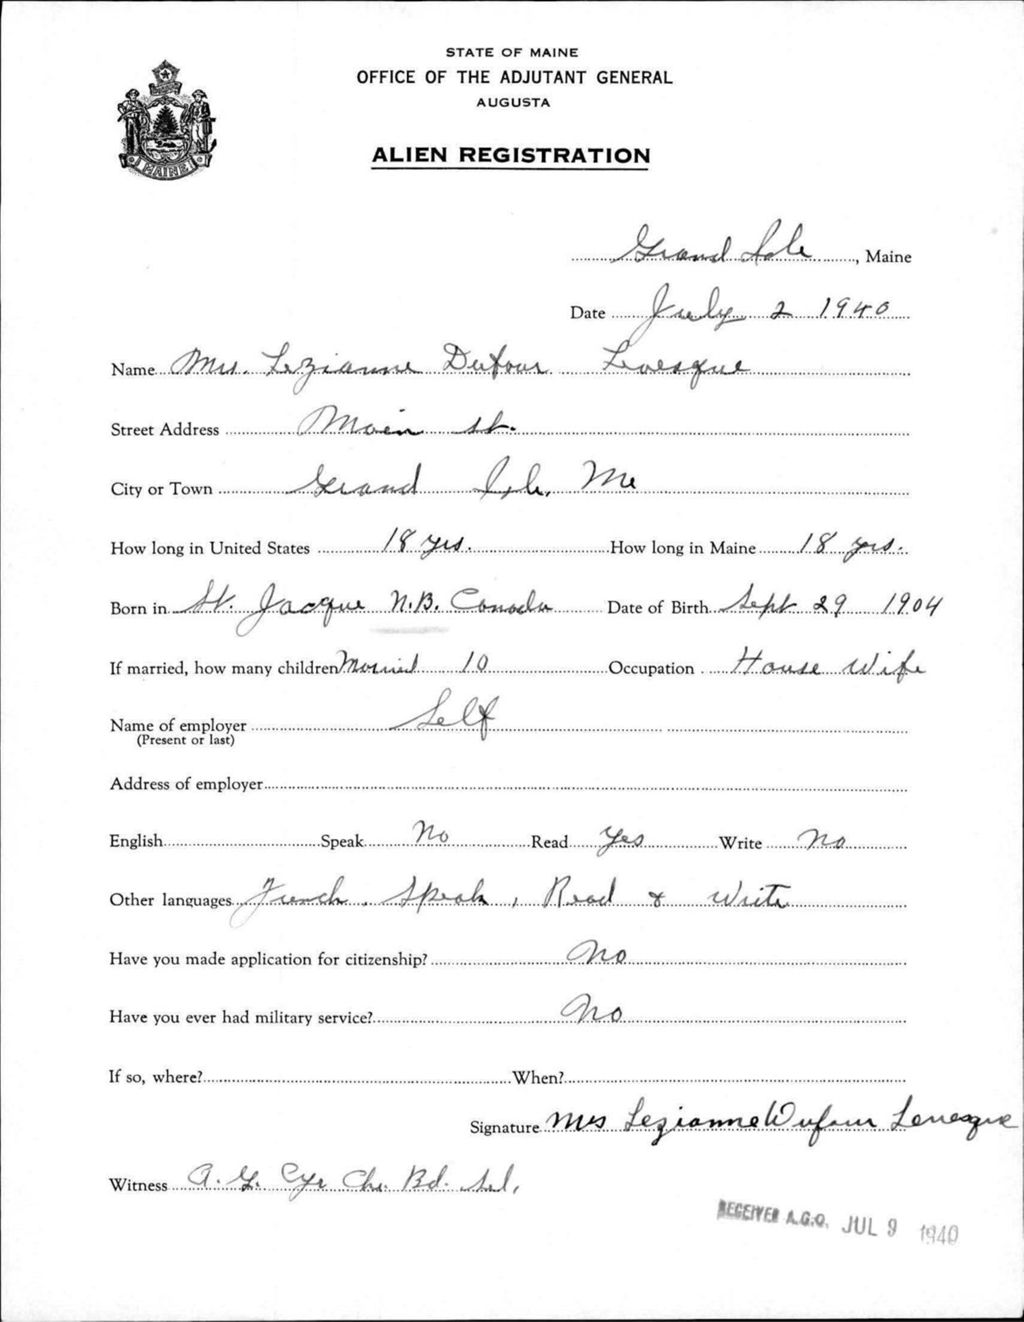 STATE OF MAINE
OFFICE OF THE ADJUTANT GENERAL
AUGUSTA
ALIEN REGISTRATION
MAINE
Grand Isle, Maine
Date July 2 1940
Name Mrs. Lezianne Dufour Levesque
Street Address Main St.
City or Town Grand Isle, Me
How long in United States 18 yrs. How long in Maine 18 yrs.
Born in St. Jacque N.B. Canada Date of Birth Sept 29 1904
If married, how many children Married 10 Occupation House Wife
Name of employer Self
(Present or last)
Address of employer
English Speak No Read Yes Write No
Other languages French. Speak, Read & Write
Have you made application for citizenship? No
Have you ever had military service? No
If so, where? When?
Signature Mrs Lezianne Dufour Levesque
Witness A. G. Cyr Ch. Bd. Sel.
RECEIVED A.G.O. JUL 9 1940